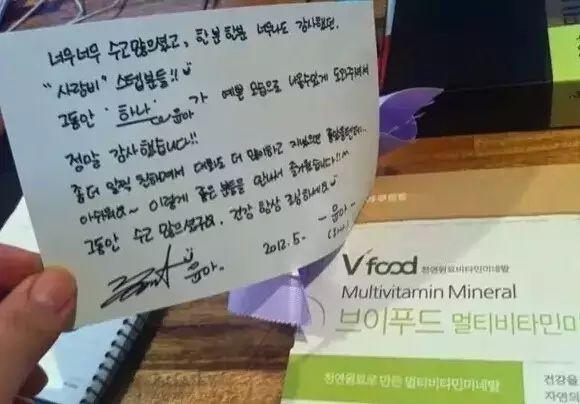 너무너무 수고 많으셨고, 한분 한분 너무나도 감사했던.
"사랑비" 스텝분들!!
그동안 '하나' 윤아가 예쁜 모습으로 나올수있게 도와주셔서
정말 감사했습니다!!
좀더 일찍 친해져서 대화도 더 많이하고 지냈으면 좋았을텐데..
아쉬워요~ 이렇게 좋은 분들을 만나서 즐거웠습니다!!^^
그동안 수고 많으셨구요. 건강 항상 조심하세요
2012. 5. -윤아-
윤아.
Vfood 천연원료비타민미네랄
Multivitamin Mineral
브이푸드 멀티비타민미
천연원료로 만든 멀티비타민미네랄
건강을
자연의